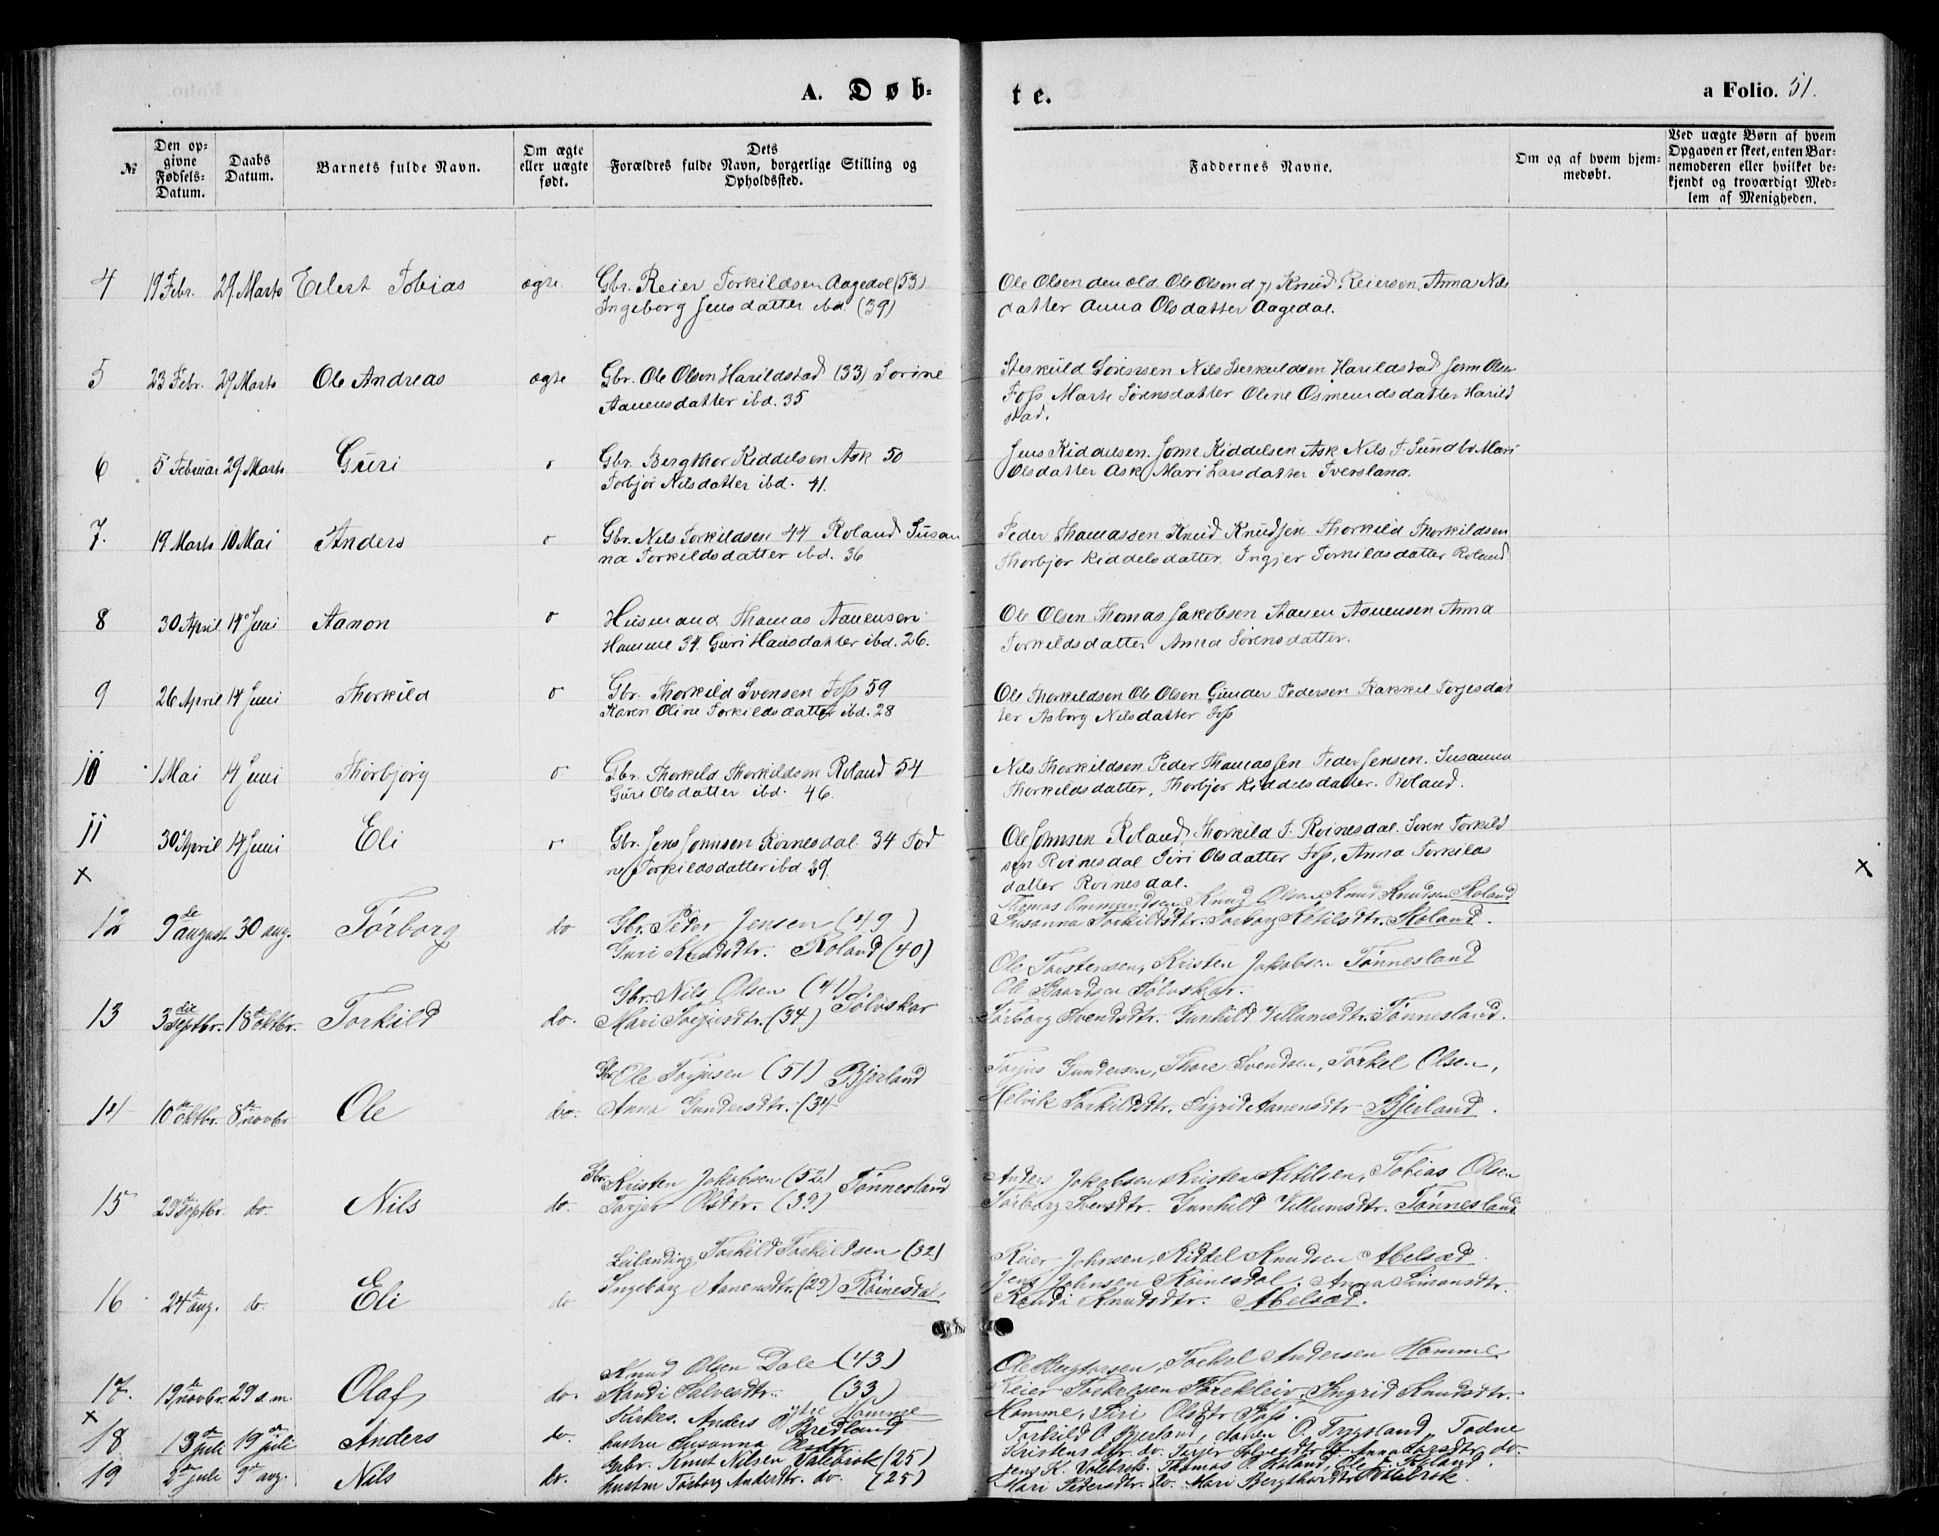 A. Døb-
te.
a Folio. 51.
№
Den op-
givne
Fødsels-
Datum.
Daabs
Datum.
Barnets fulde Navn.
Om ægte
eller uægte
født.
Dets
Forældres fulde Navn, borgerlige Stilling og
Opholdssted.
Faddernes Navne.
Om og af hvem hjem-
medøbt.
Ved uægte Børn af hvem
Opgaven er skeet, enten Bar-
nemoderen eller hvilket be-
kjendt og troværdigt Med-
lem af Menigheden.
4 19 Febr. 29 Marts Eilert Tobias ægte Gbr. Reier Torkildsen Aagedal (53)
Ingeborg Jensdatter ibd. (39)
Ole Olsen den old. Ole Olsen d y, Knud Reiersen, Anna Nils
datter Anna Olsdatter Aagedal.
5 23 Febr. 29 Marts Ole Andreas ægte Gbr. Ole Olsen Harildstad (33) Sorine
Aanensdatter ibd. 35
Sørensen Nils Harildstad Jorm Olsen
Foss Marte Sørensdatter Oline Osmundsdatter Harild
stad.
6 5 Februar 29 Marts Guri Gbr. Bergthor Kiddelsen Ask 50
Torbjør Nilsdatter ibd. 41.
Jens Kiddelsen. Jorm Kiddelsen Ask Nils T. Sundbø Mari
Olsdatter Ask Mari Larsdatter Iversland.
7. 19 Marts 10 Mai Anders Gbr. Nils Torkildsen 44 Roland Susan
na Torkildsdatter ibd. 36
Peder Thomassen Knud Knudsen Thorkild Thorkildsen
Thorbjør Kiddelsdatter. Ingjer Torkildsdatter Roland
8 30 April 14 Juni Aanon Husmand Thomas Aanensen
Homme 34. Guri Hansdatter ibd. 26.
Ole Olsen Thomas Jakobsen Aanen Aanensen Anna
Torkildsdatter Anna Sørensdatter.
9 26 April 14 Juni Thorkild Gbr. Thorkild Svensen Foss 59
Karen Oline Torkildsdatter ibd. 28
Ole Thorkildsen Ole Olsen Gunder Pedersen Rakkel Torjesdat
ter Asborg Nilsdatter Foss
10 1 Mai 14 Juni Thorbjørg Gbr. Thorkild Thorkildsen Roland 54
Guri Olsdatter ibd. 46.
Nils Thorkildsen Peder Thomassen Peder Jensen. Susanna
Thorkildsdatter, Thorbjør Kiddelsdatter. Roland.
11 30 April 14 Juni Eli Gbr. Jens Jormsen Roinesdal 34 Tod
ne Torkildsdatter ibd 29.
Ole Jormsen Roland, Thorkild T. Roinesdal. Søren Torkild
sen Roinesdal Siri Olsdatter Foss, Anna Torkilds
datter Roinesdal.
x
x
12 9de august 30 aug. Tørborg do Gbr. Peder Jensen (49)
Guri Knudsdtr. Roland (40)
Thomas Ommundsen Knud Olsen Knud Knudsen Roland
Susanna Torkildsdtr. Torborg Ketilsdtr. Roland.
13 3die septbr. 18de oktbr. Torkild do. Gbr. Nils Olsen (41)
Mari Torjusdtr. (34) Sølvskar
Ole Torstensen, Kristen Jakobsen Tønnesland
Ole Baardsen Sølvskar.
Torborg Svendsdtr. Gunhild Villumsdtr. Tønnesland.
14 10de oktbr. 8de novbr Ole do. Gbr Ole Torjusen (51) Bjerland
Anna Gundersdtr. (34
Torjus Gundersen, Thore Svendsen, Torkel Olsen,
Helvik Torkildsdtr. Sigrid Aanensdtr Bjerland.
15 29de septbr. do. Nils do. Gbr. Kristen Jakobsen (52) Tønnesland
Torjer Olsdtr. (39)
Anders Jakobsen Kristen Ketilsen, Tobias Olsen
Tørborg Svensdtr. Gunhild Villumsdtr. Tønnesland
16 24de aug. do. Eli do Leilænding Torkild Torkildsen (32)
Ingeborg Aanensdtr. (29) Røinesdal.
Reier Johnsen, Kiddel Knudsen Abelsæd
Jens Johnsen Røinesdal. Anna Simonsdtr.
Randi Knudsdtr. Abelsæd.
17. 19de novbr. 29 s.m. Olaf do. Knud Olsen Dale (43)
Randi Salvesdtr. (33)
ytre Homme
Ole Bergtorsen, Torkel Andersen Homme
Reier Torkelsen Ingrid Knudsdtr.
Homme, Siri Olsdtr Foss.
x
18 13de juli 19de juli Anders do. Anders Bredland
hustru Susanna Olsdtr.
Torkild O. Bjerland, Aanen O. Trygsland, Todne
Kristensdtr. do. Torjer Salvesdtr & Anna Larsdtr. do.
19 2den juli 9de aug. Nils do. Gbr. Knut Nilsen Valebrok (25)
hustru Tørborg Andersdtr. do. (25)
Jens K. Valebrok. Thomas O. Roland, Ole Roland.
Mari Pedersdtr. do. Mari Bergthorsdtr. Valebrok.